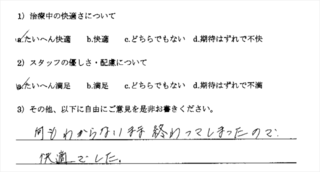 1) 治療中の快適さについて
a.たいへん快適 b.快適 c.どちらでもない d.期待はずれで不快
2) スタッフの優しさ・配慮について
a.たいへん満足 b.満足 c.どちらでもない d.期待はずれで不満
3) その他、以下に自由にご意見を是非お書きください。
何もわからないまま終わってしまったので
快適でした。